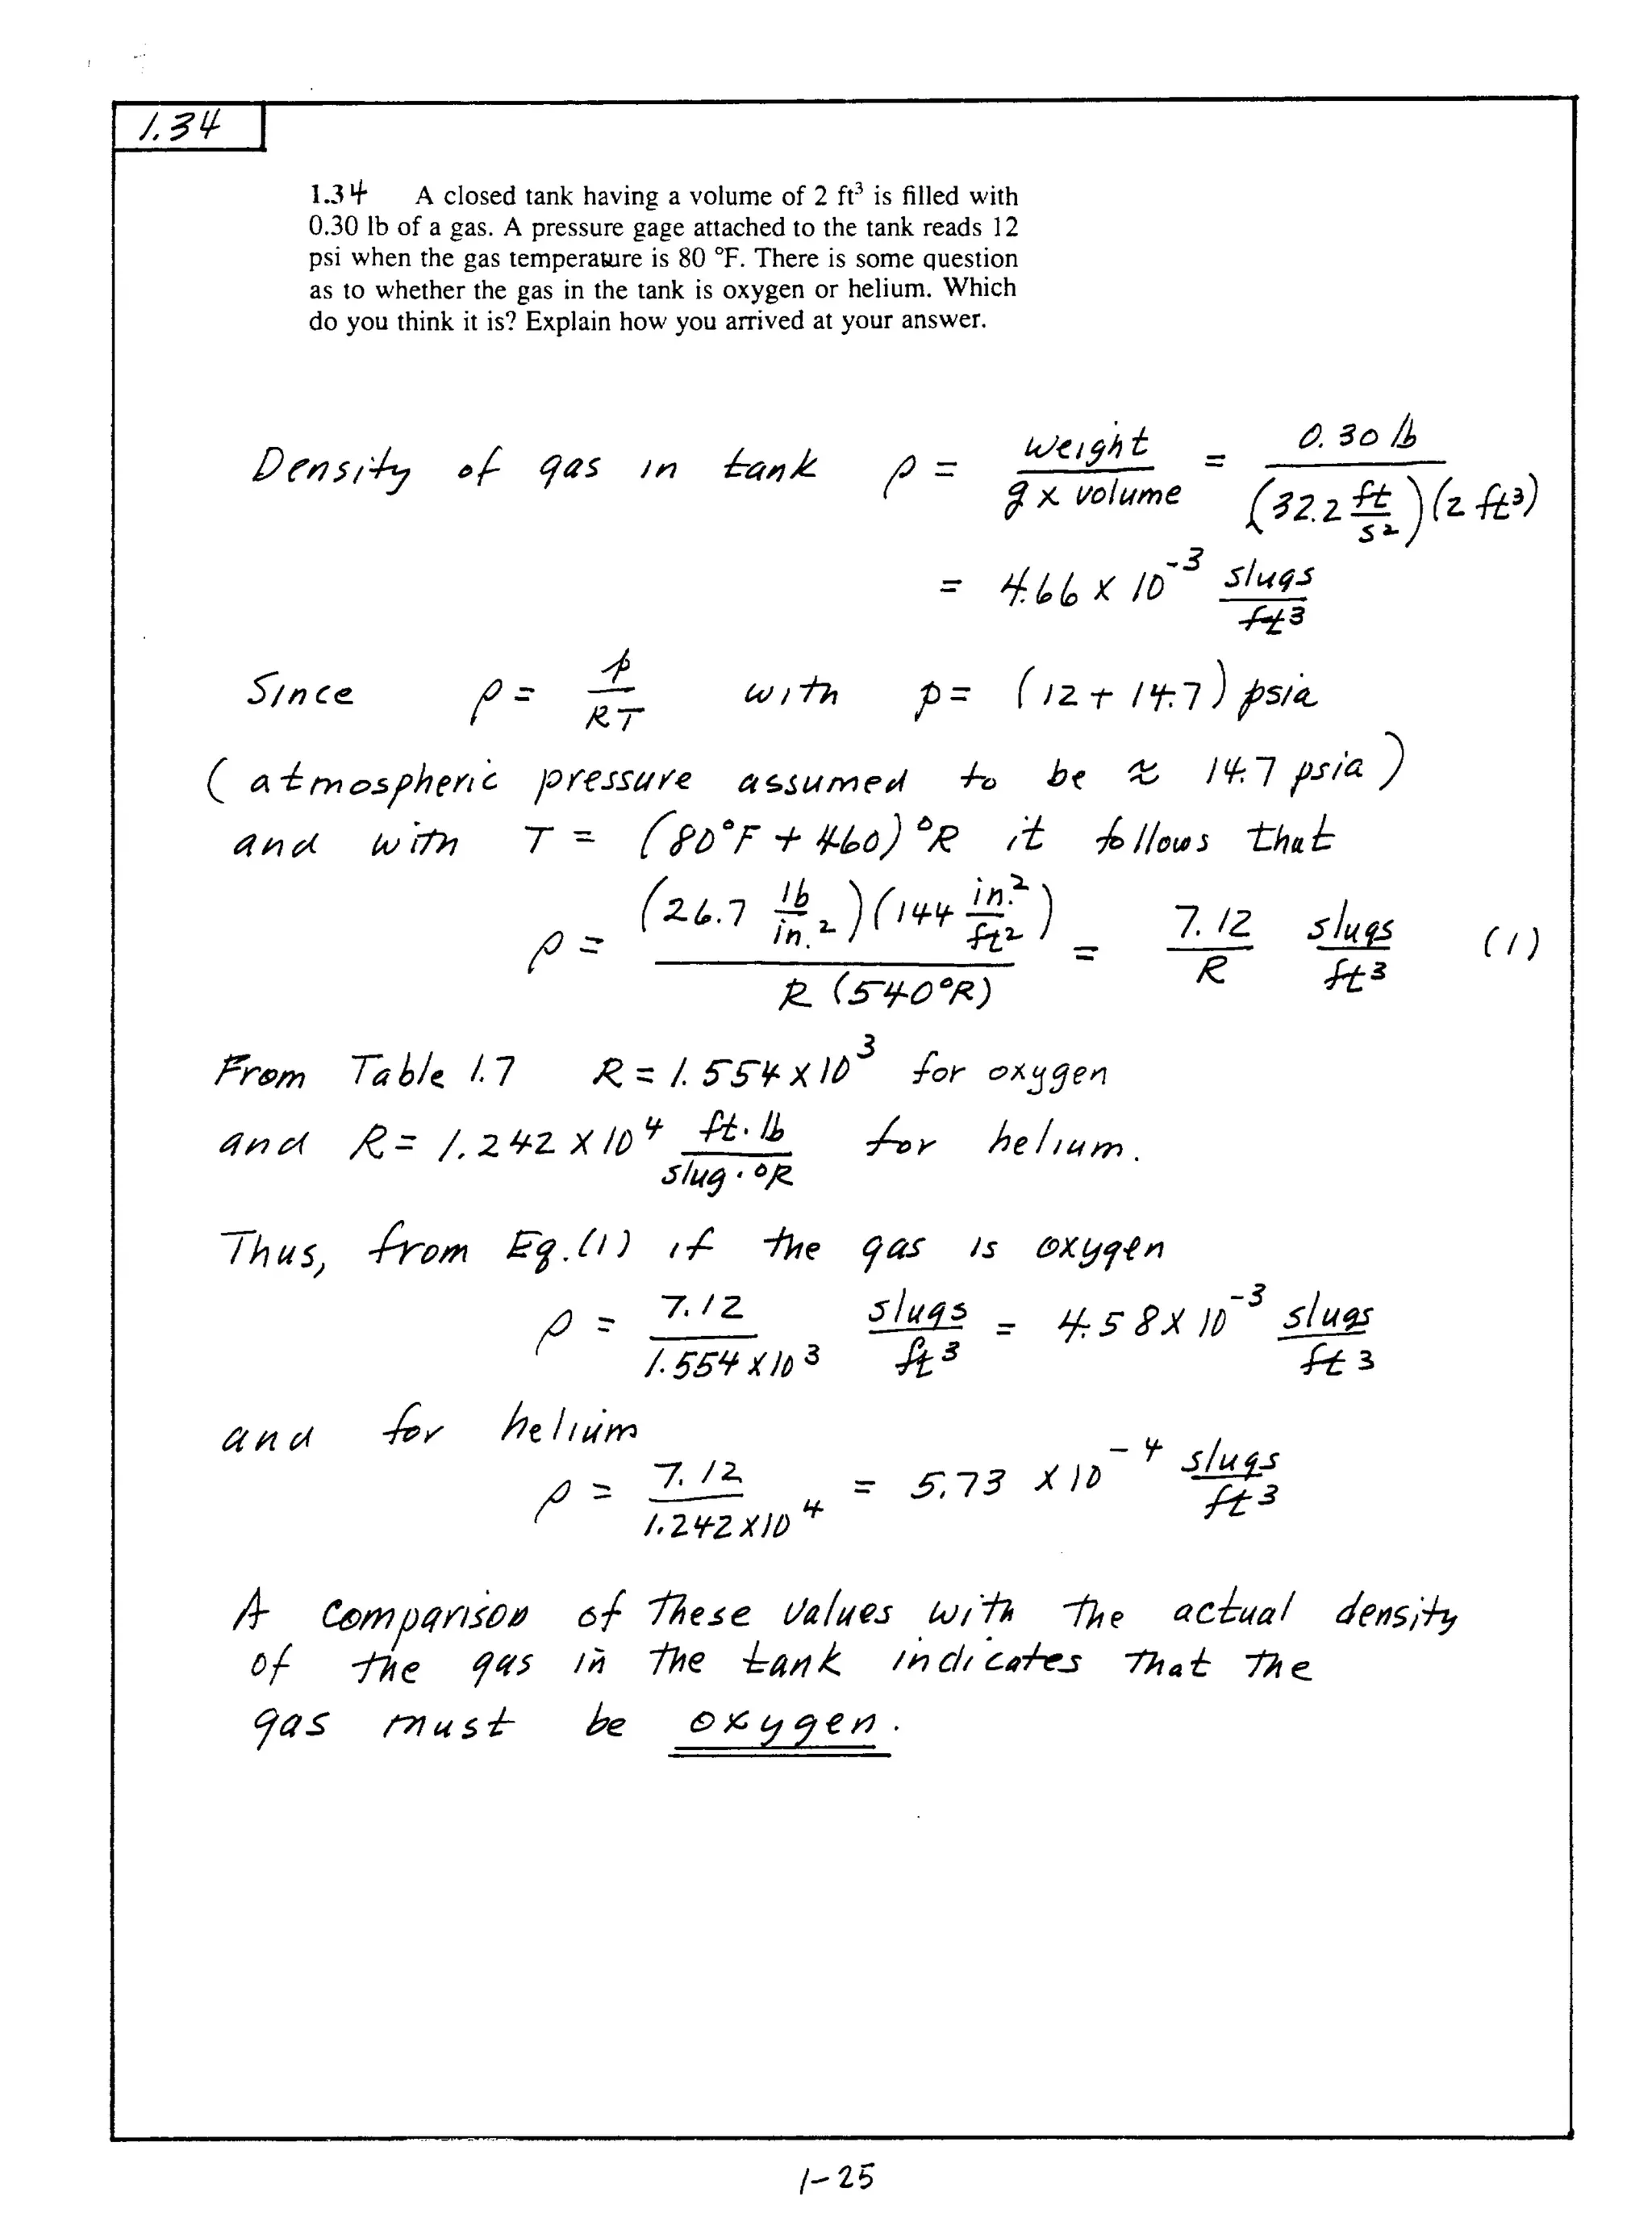 1.34
1.34 A closed tank having a volume of 2 ft³ is filled with
0.30 lb of a gas. A pressure gage attached to the tank reads 12
psi when the gas temperature is 80 °F. There is some question
as to whether the gas in the tank is oxygen or helium. Which
do you think it is? Explain how you arrived at your answer.
Density of gas in tank ρ = weight / (g x volume) = 0.30 lb / ((32.2 ft/s²)(2 ft³))
= 4.66 x 10⁻³ slugs/ft³
Since ρ = p/RT with p = (12 + 14.7) psia
(atmospheric pressure assumed to be ≈ 14.7 psia)
and with T = (80°F + 460)°R it follows that
ρ = (26.7 lb/in.²)(144 in.²/ft²) / (R (540°R)) = 7.12/R slugs/ft³ (1)
From Table 1.7 R = 1.554 x 10³ for oxygen
and R = 1.242 x 10⁴ ft·lb/slug·°R for helium.
Thus, from Eq.(1) if the gas is oxygen
ρ = 7.12/(1.554 x 10³) slugs/ft³ = 4.58 x 10⁻³ slugs/ft³
and for helium
ρ = 7.12/(1.242 x 10⁴) = 5.73 x 10⁻⁴ slugs/ft³
A comparison of these values with the actual density
of the gas in the tank indicates that the
gas must be oxygen.
1-25